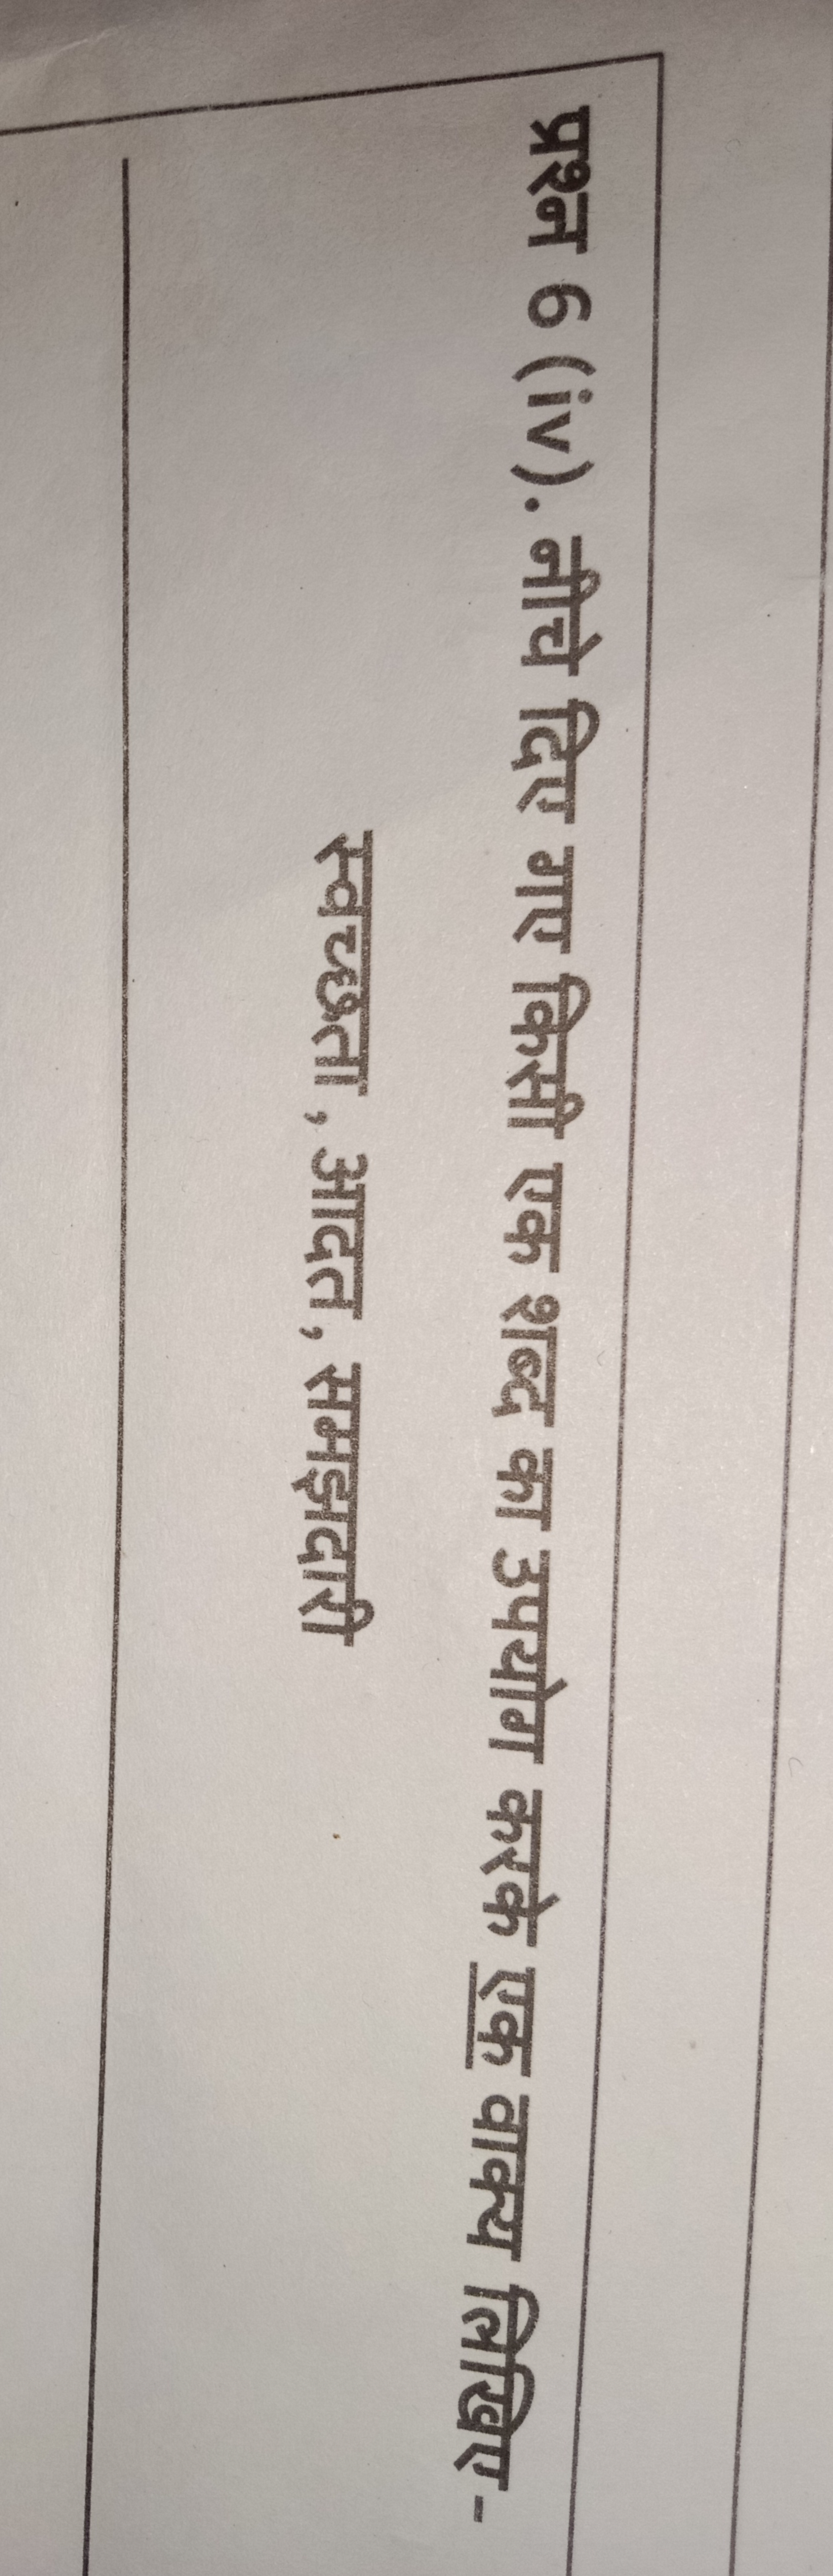 प्रश्न 6 (iv). नीचे दिए गए किसी एक शब्द का उपयोग करके एक वाक्य लिखिए-
स्वच्छता, आदत, समझदारी